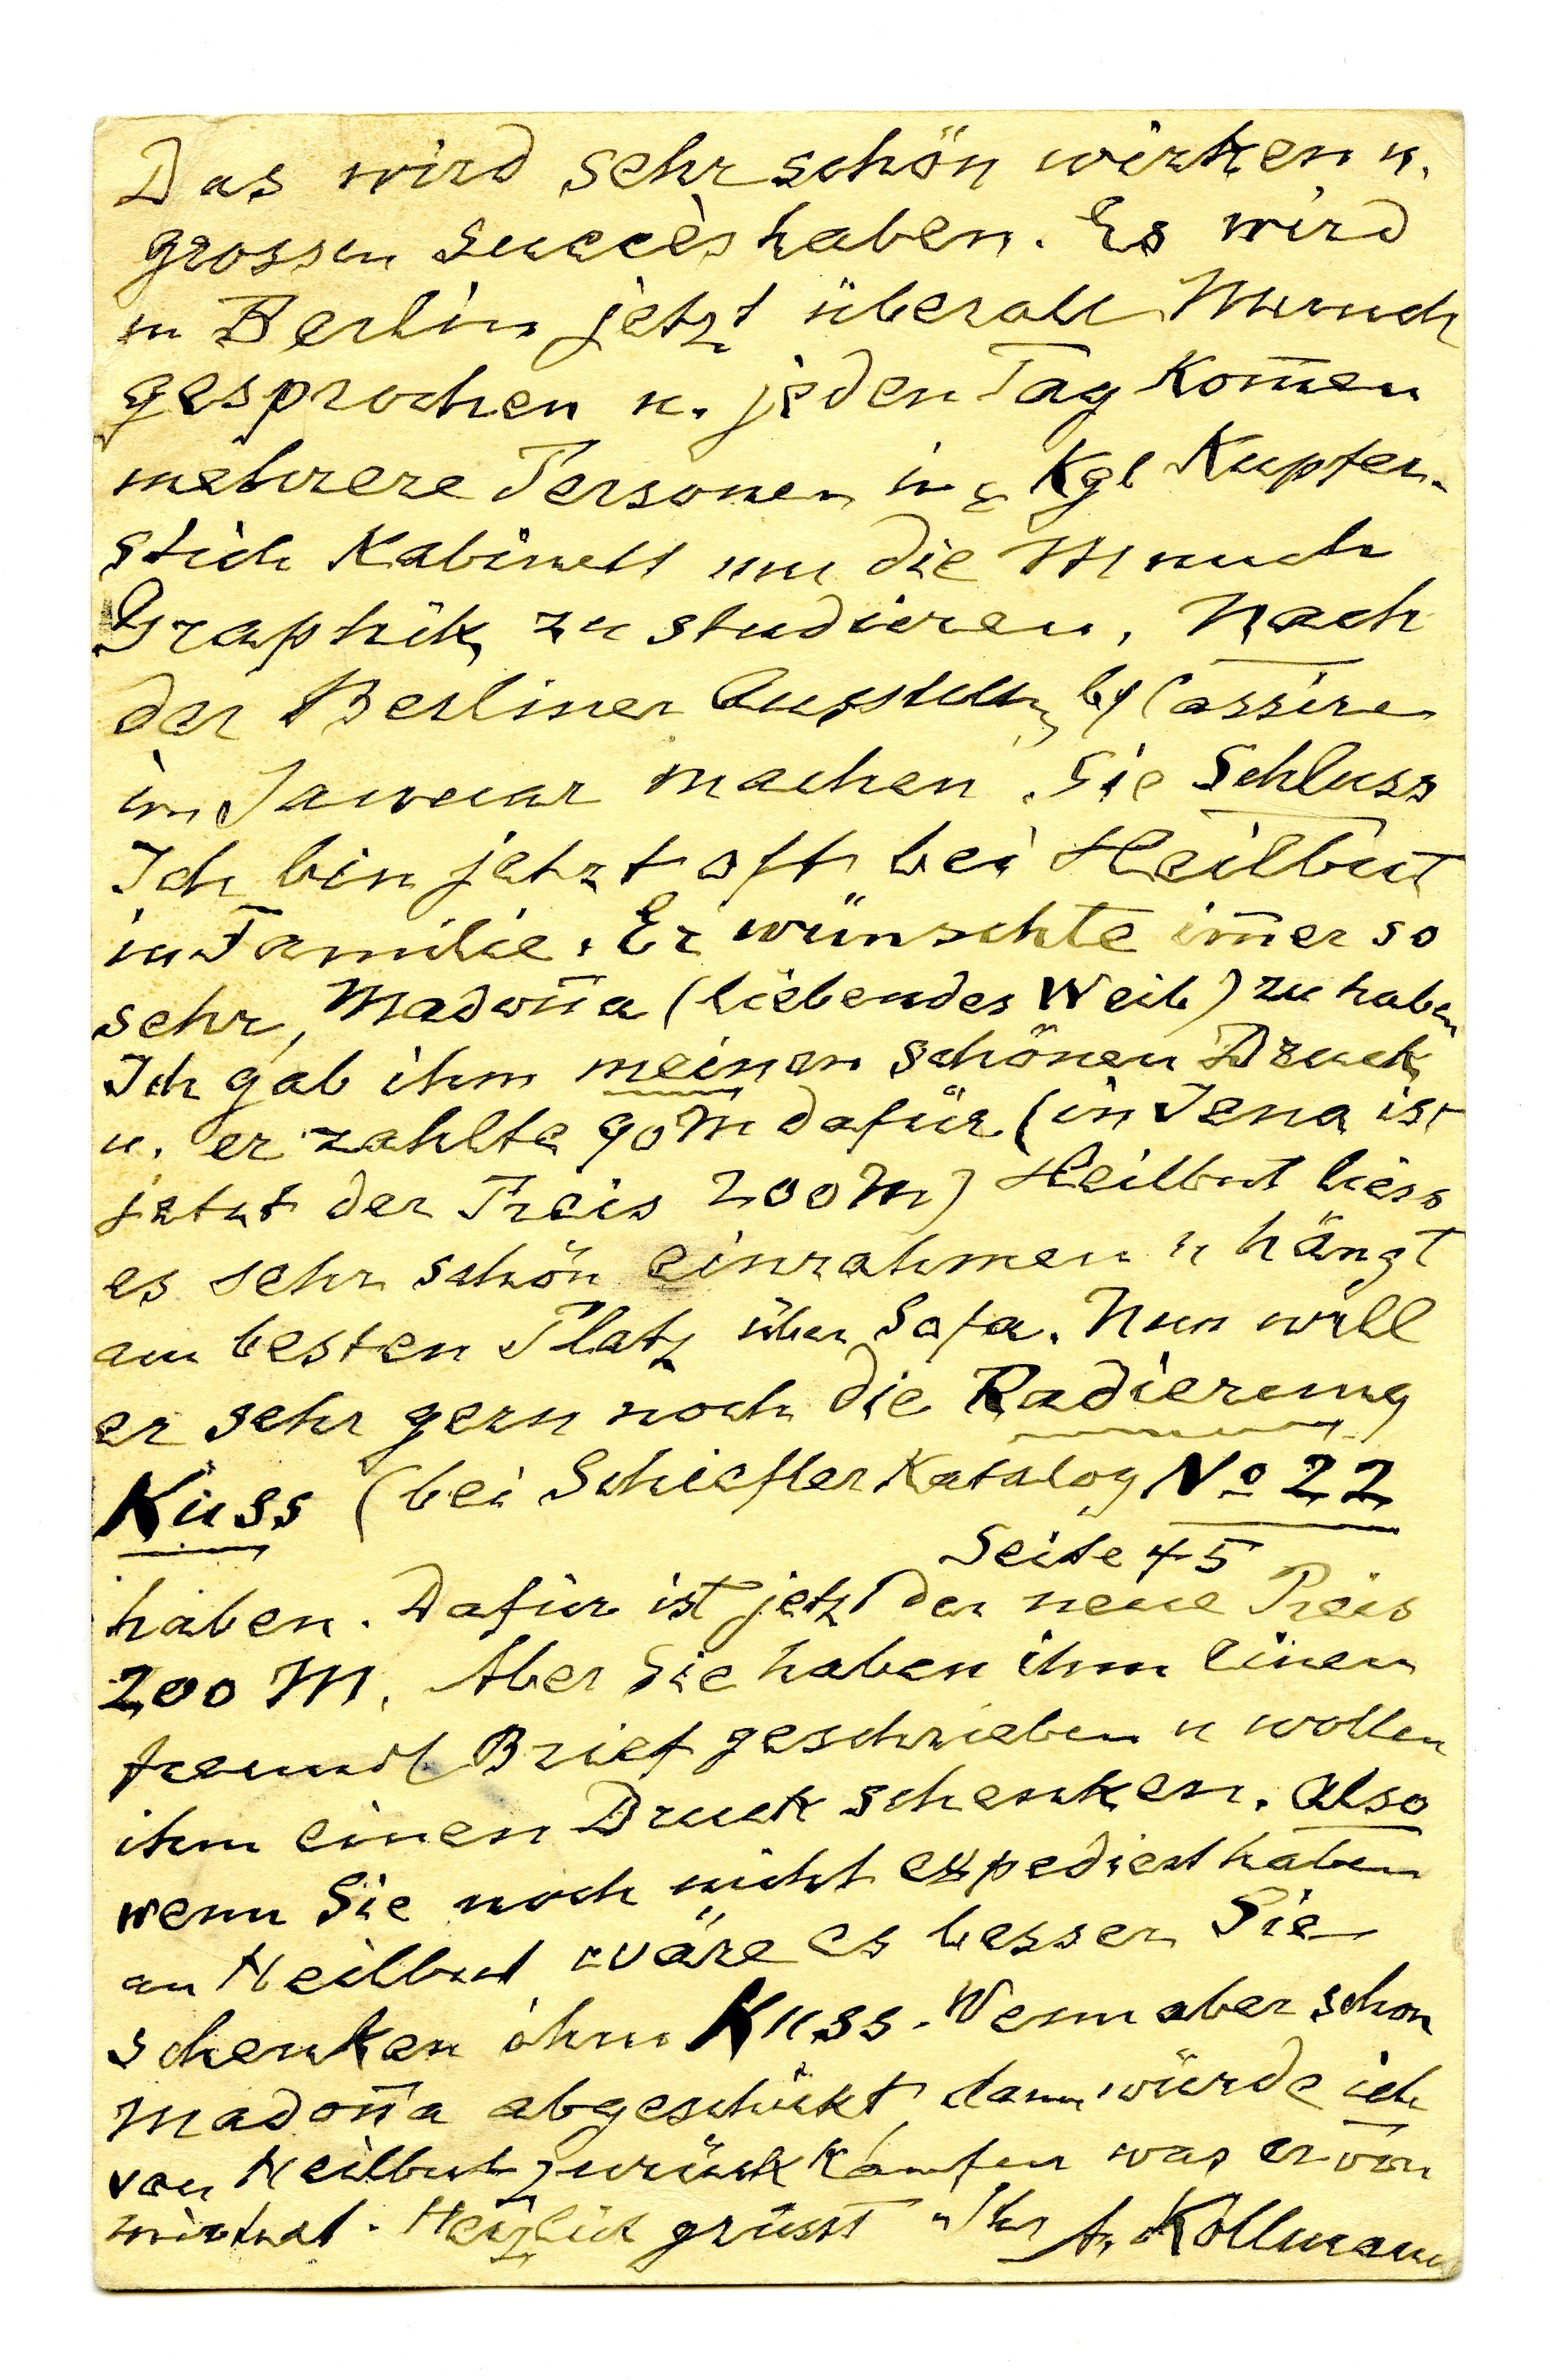 Das wird sehr schön wirken u.
grossen succès haben. Es wird
in Berlin jetzt überall Munch
gesprochen u. jeden Tag kom̄en
mehrere Personen in Kgl Kupfer-
stich Kabinett um die Munch
Graphik zu studieren. Nach
der Berliner Ausstellung bei Cassirer
im Januar machen Sie Schluss
Ich bin jetzt oft bei Heilbut
in Familie. Er wünschte im̄er so
sehr, Madon̄a (liebendes Weib) zu haben
Ich gab ihm meinen schönen Druck
u. er zahlte 90 M dafür (in Jena ist
jetzt der Preis 200 M) Heilbut liess
es sehr schön einrahmen u hängt
am besten Platz über Sofa. Nun will
er sehr gern noch die Radierung
Kuss (bei Schiefler Katalog No 22
Seite 45
haben. Dafür ist jetzt der neue Preis
200 M. Aber Sie haben ihm einen
freundl Brief geschrieben u wollen
ihm einen Druck schenken. Also
wenn Sie noch nicht expediert haben
an Heilbut wäre es besser Sie
schenken ihm Kuss. Wenn aber schon
Madon̄a abgeschickt, dann würde ich
von Heilbut zurück kaufen was er von
mir hat. Herzlich grüsst Ihr A. Kollmann